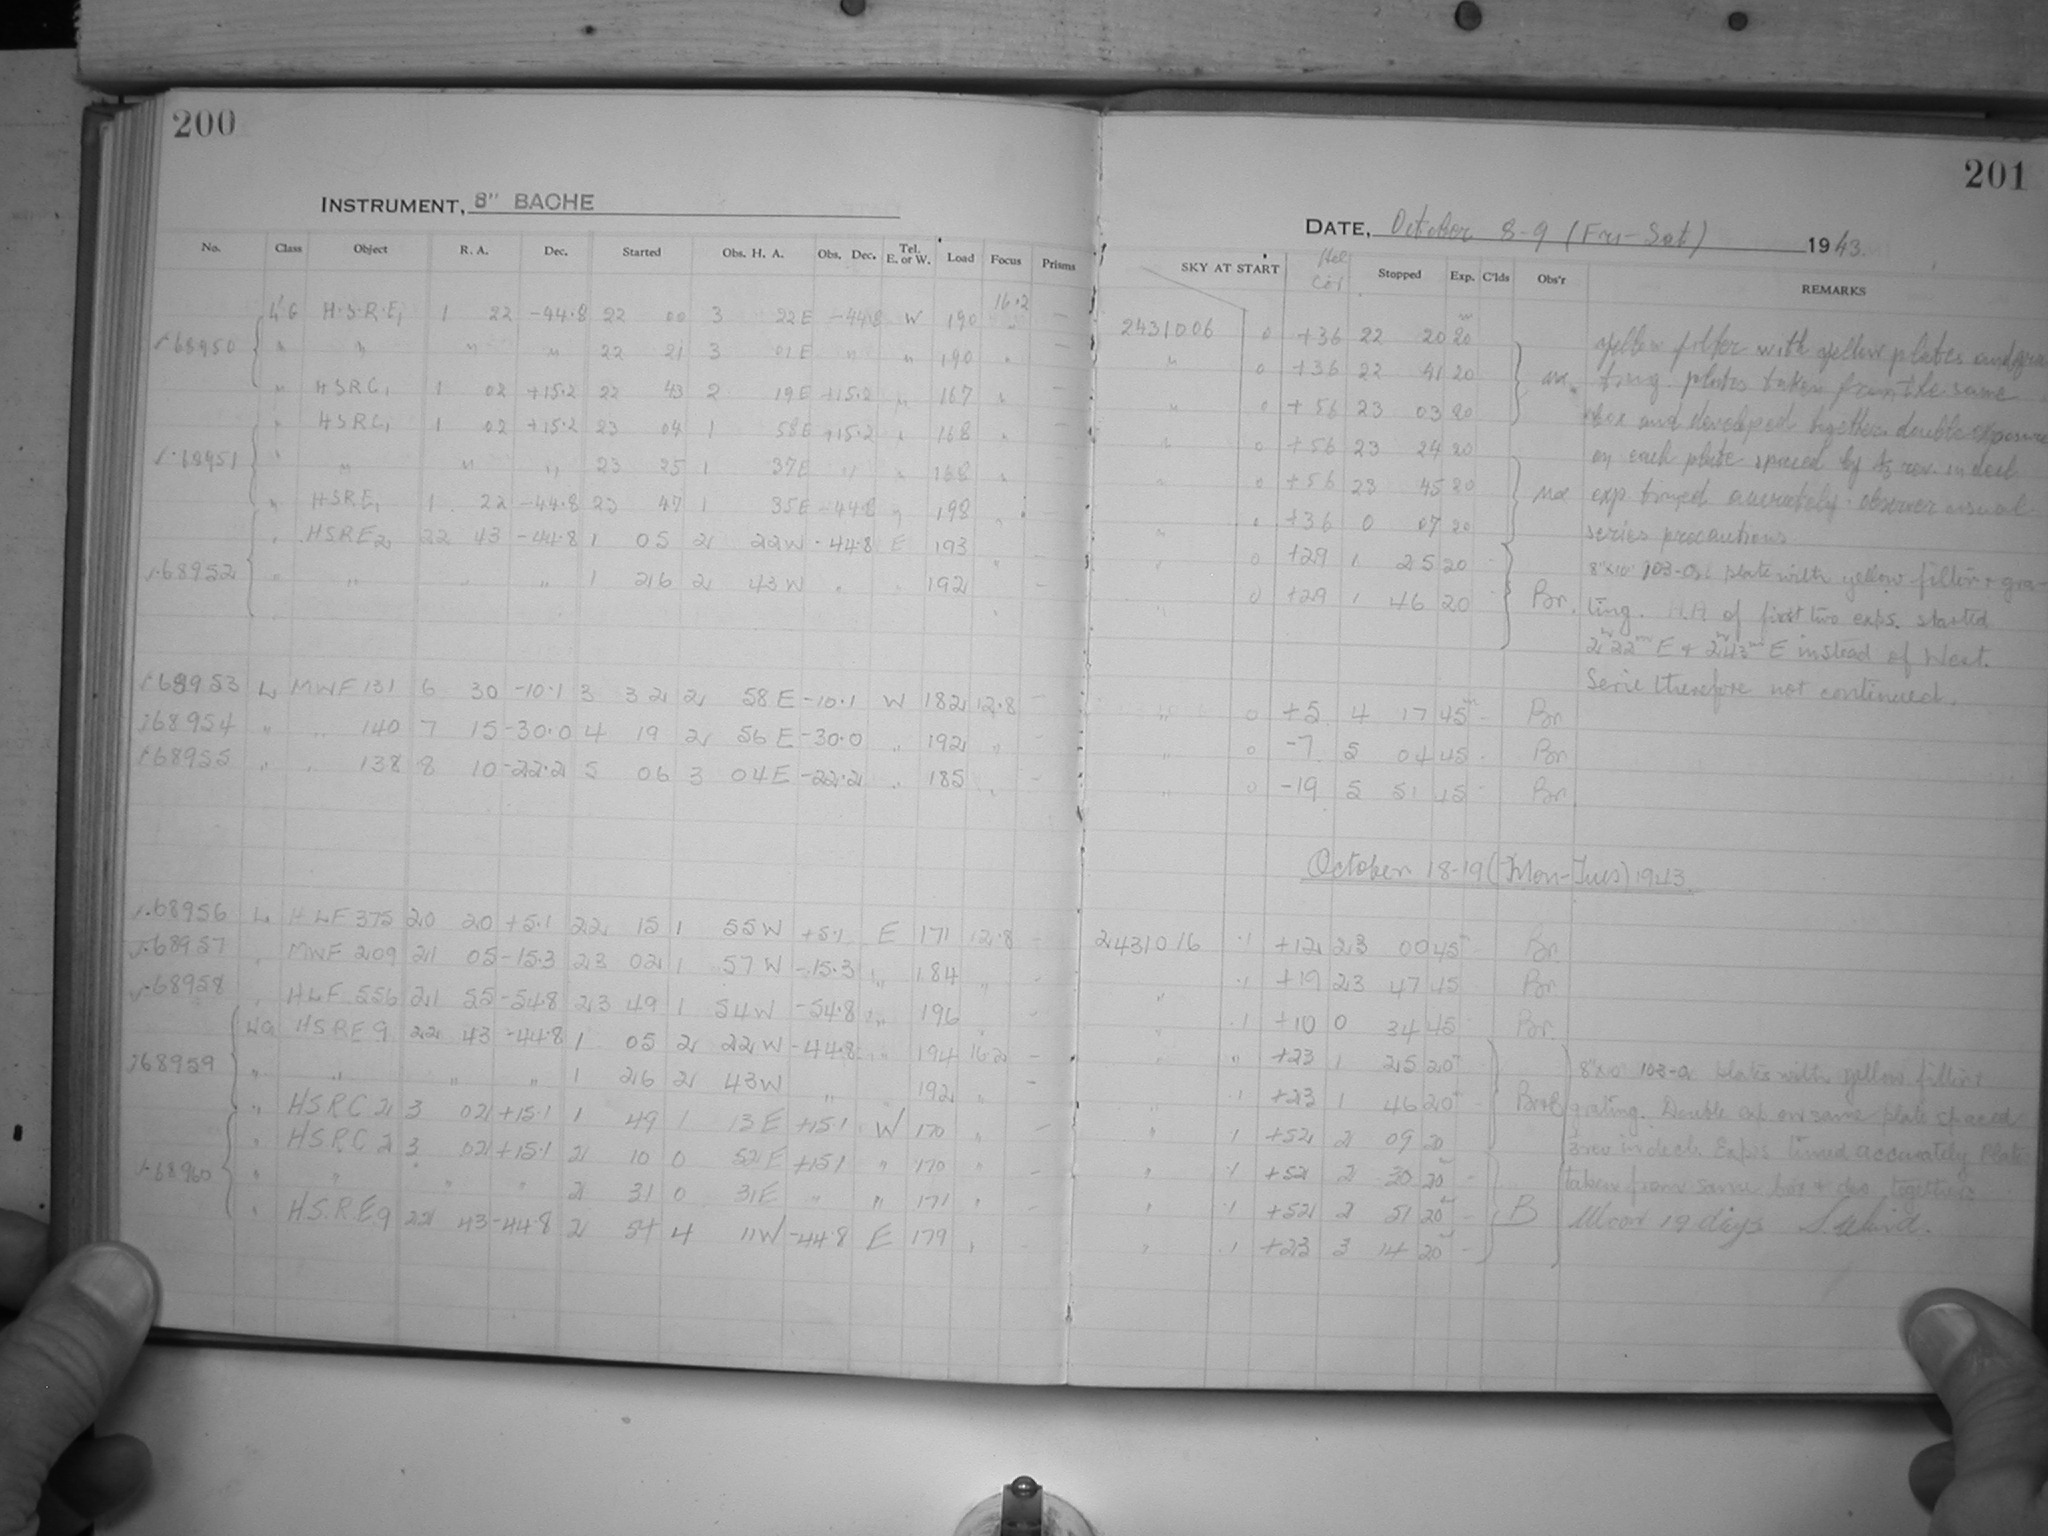 200
INSTRUMENT, 8" BACHE
No. Class Object R. A. Dec. Started Obs. H. A. Obs. Dec. Tel. E. or W. Load Focus Prisms
LG H.S.R.E1 1 22 -44.8 22 00 3 22E -44.8 W 190 16.2 —
68950 " " " " 22 21 3 01E " " 190 "
" HSRC1 1 02 +15.2 22 43 2 19E +15.2 " 167 "
" HSRC1 1 02 +15.2 23 04 1 58E +15.2 " 168 "
68951 " " " " 23 25 1 37E " " 168 "
" HSRE1 1 22 -44.8 23 47 1 35E -44.8 " 198 "
" HSRE2 22 43 -44.8 1 05 2 22W -44.8 E 193 —
68952 " " " " 1 26 2 43W " " 192 " —
68953 L MWF 131 6 30 -10.1 3 32 2 58E -10.1 W 182 12.8 —
68954 " " 140 7 15 -30.0 4 19 2 56E -30.0 " 192 " —
68955 " " 138 8 10 -22.2 5 06 3 04E -22.2 " 185 " —
68956 L HLF 375 20 20 +5.1 22 15 1 55W +5.1 E 171 12.8 —
68957 " MWF 209 21 05 -15.3 23 02 1 57W -15.3 " 184 " —
68958 " HLF 556 21 55 -54.8 23 49 1 54W -54.8 " 196 "
LG HSRE9 22 43 -44.8 1 05 2 22W -44.8 " 194 16.2 —
68959 " " " " 1 26 2 43W " 192 " —
" HSRC2 3 02 +15.1 1 49 1 13E +15.1 W 170 "
" HSRC2 3 02 +15.1 2 10 0 52E +15.1 " 170 " —
68960 " " " " 2 31 0 31E " " 171 " —
" H.S.R.E9 22 43 -44.8 2 54 4 11W -44.8 E 179 " —
201
DATE, October 8-9 (Fri-Sat) 1943.
SKY AT START Hel Cor. Stopped Exp. C'lds Obs'r REMARKS
2431006 0 +36 22 20 20m yellow filter with yellow plates and gra-
" 0 +36 22 41 20 ting. plates taken from the same
" 0 +56 23 03 20 box and developed together. double exposure
" 0 +56 23 24 20 on each plate spaced by rev. in decl.
" 0 +56 23 45 20 exp timed accurately. observer usual
" 0 +36 0 07 20 series precautions
" 0 +29 1 25 20 8"x10" 103-O plate with yellow filter & gra-
" 0 +29 1 46 20 Br. ting. H.A. of first two exps. started
2h22m E & 2h43m E instead of West.
Serie therefore not continued.
" 0 +5 4 17 45m — Br
" 0 -7 5 04 45 — Br
" 0 -19 5 51 45 — Br
October 18-19 (Mon-Tues) 1943
2431016 .1 +12 23 00 45 — Br
" .1 +19 23 47 45 Br
" .1 +10 0 34 45 Br
" " +23 1 25 20 8"x10" 103-a plates with yellow filter &
" .1 +23 1 46 20 grating. Double exp on same plate spaced
" .1 +52 2 09 20 rev in decl. Exps timed accurately Plate
" .1 +52 2 30 20 — taken from same box & dev. together
" .1 +52 2 51 20 — B Moon 19 days
" .1 +23 3 14 20 —